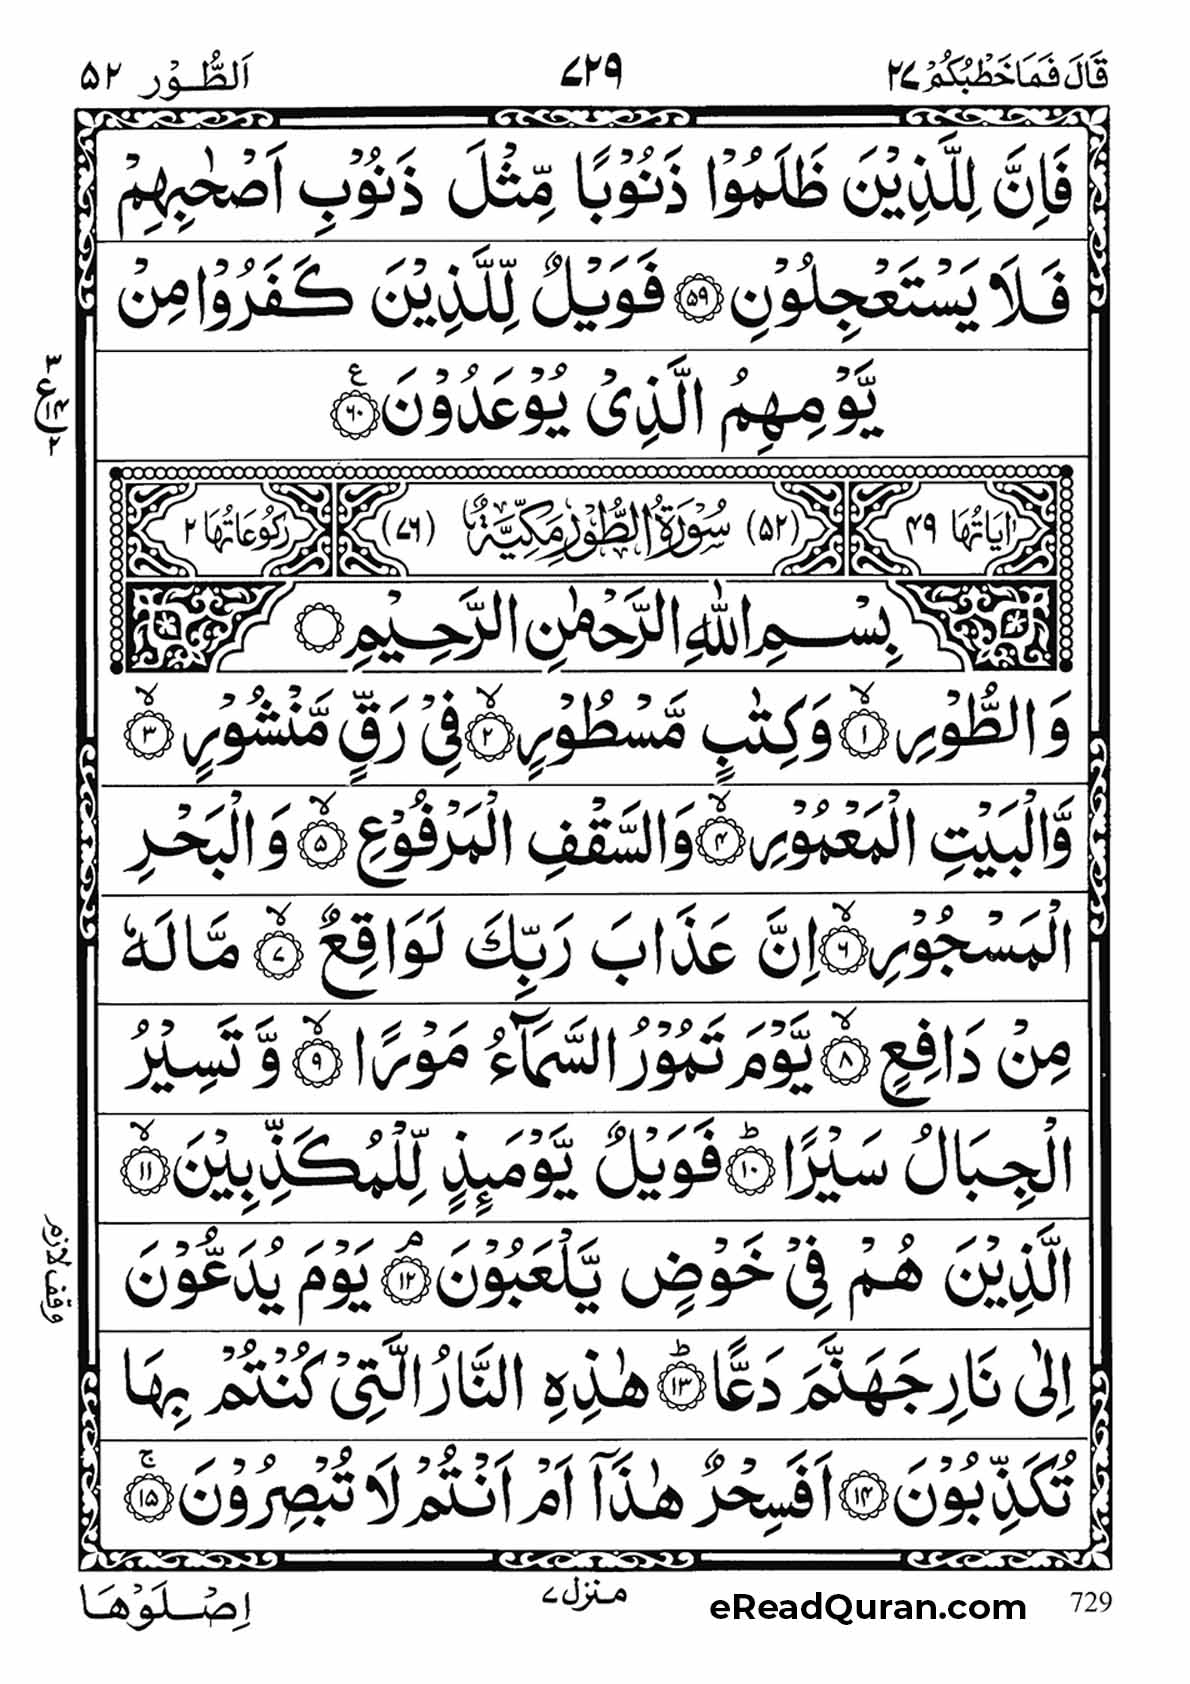 قَالَ فَمَا خَطْبُكُمْ ٢٧ ٧٢٩ اَلطُّوْر ٥٢
فَاِنَّ لِلَّذِيْنَ ظَلَمُوْا ذَنُوْبًا مِّثْلَ ذَنُوْبِ اَصْحٰبِهِمْ
فَلَا يَسْتَعْجِلُوْنِ ۝٥٩ فَوَيْلٌ لِّلَّذِيْنَ كَفَرُوْا مِنْ
يَّوْمِهِمُ الَّذِىْ يُوْعَدُوْنَ ۝٦٠ ع
٣
ع ١٤
٢
اٰيَاتُهَا ٤٩ (٥٢) سُوْرَةُ الطُّوْرِ مَكِّيَّةٌ (٧٦) رُكُوْعَاتُهَا ٢
بِسْمِ اللّٰهِ الرَّحْمٰنِ الرَّحِيْمِ ۝
وَالطُّوْرِ ۝١ۙ وَكِتٰبٍ مَّسْطُوْرٍ ۝٢ۙ فِىْ رَقٍّ مَّنْشُوْرٍ ۝٣ۙ
وَّالْبَيْتِ الْمَعْمُوْرِ ۝٤ۙ وَالسَّقْفِ الْمَرْفُوْعِ ۝٥ۙ وَالْبَحْرِ
الْمَسْجُوْرِ ۝٦ۙ اِنَّ عَذَابَ رَبِّكَ لَوَاقِعٌ ۝٧ۙ مَّا لَهٗ
مِنْ دَافِعٍ ۝٨ۙ يَّوْمَ تَمُوْرُ السَّمَآءُ مَوْرًا ۝٩ۙ وَّتَسِيْرُ
الْجِبَالُ سَيْرًا ۝١٠ؕ فَوَيْلٌ يَّوْمَئِذٍ لِّلْمُكَذِّبِيْنَ ۝١١ۙ
الَّذِيْنَ هُمْ فِىْ خَوْضٍ يَّلْعَبُوْنَ ۝١٢ۘ يَوْمَ يُدَعُّوْنَ
وقف لازم
اِلٰى نَارِ جَهَنَّمَ دَعًّا ۝١٣ؕ هٰذِهِ النَّارُ الَّتِىْ كُنْتُمْ بِهَا
تُكَذِّبُوْنَ ۝١٤ اَفَسِحْرٌ هٰذَآ اَمْ اَنْتُمْ لَا تُبْصِرُوْنَ ۝١٥ۚ
729 eReadQuran.com منزل ٧ اِصْلَوْهَا